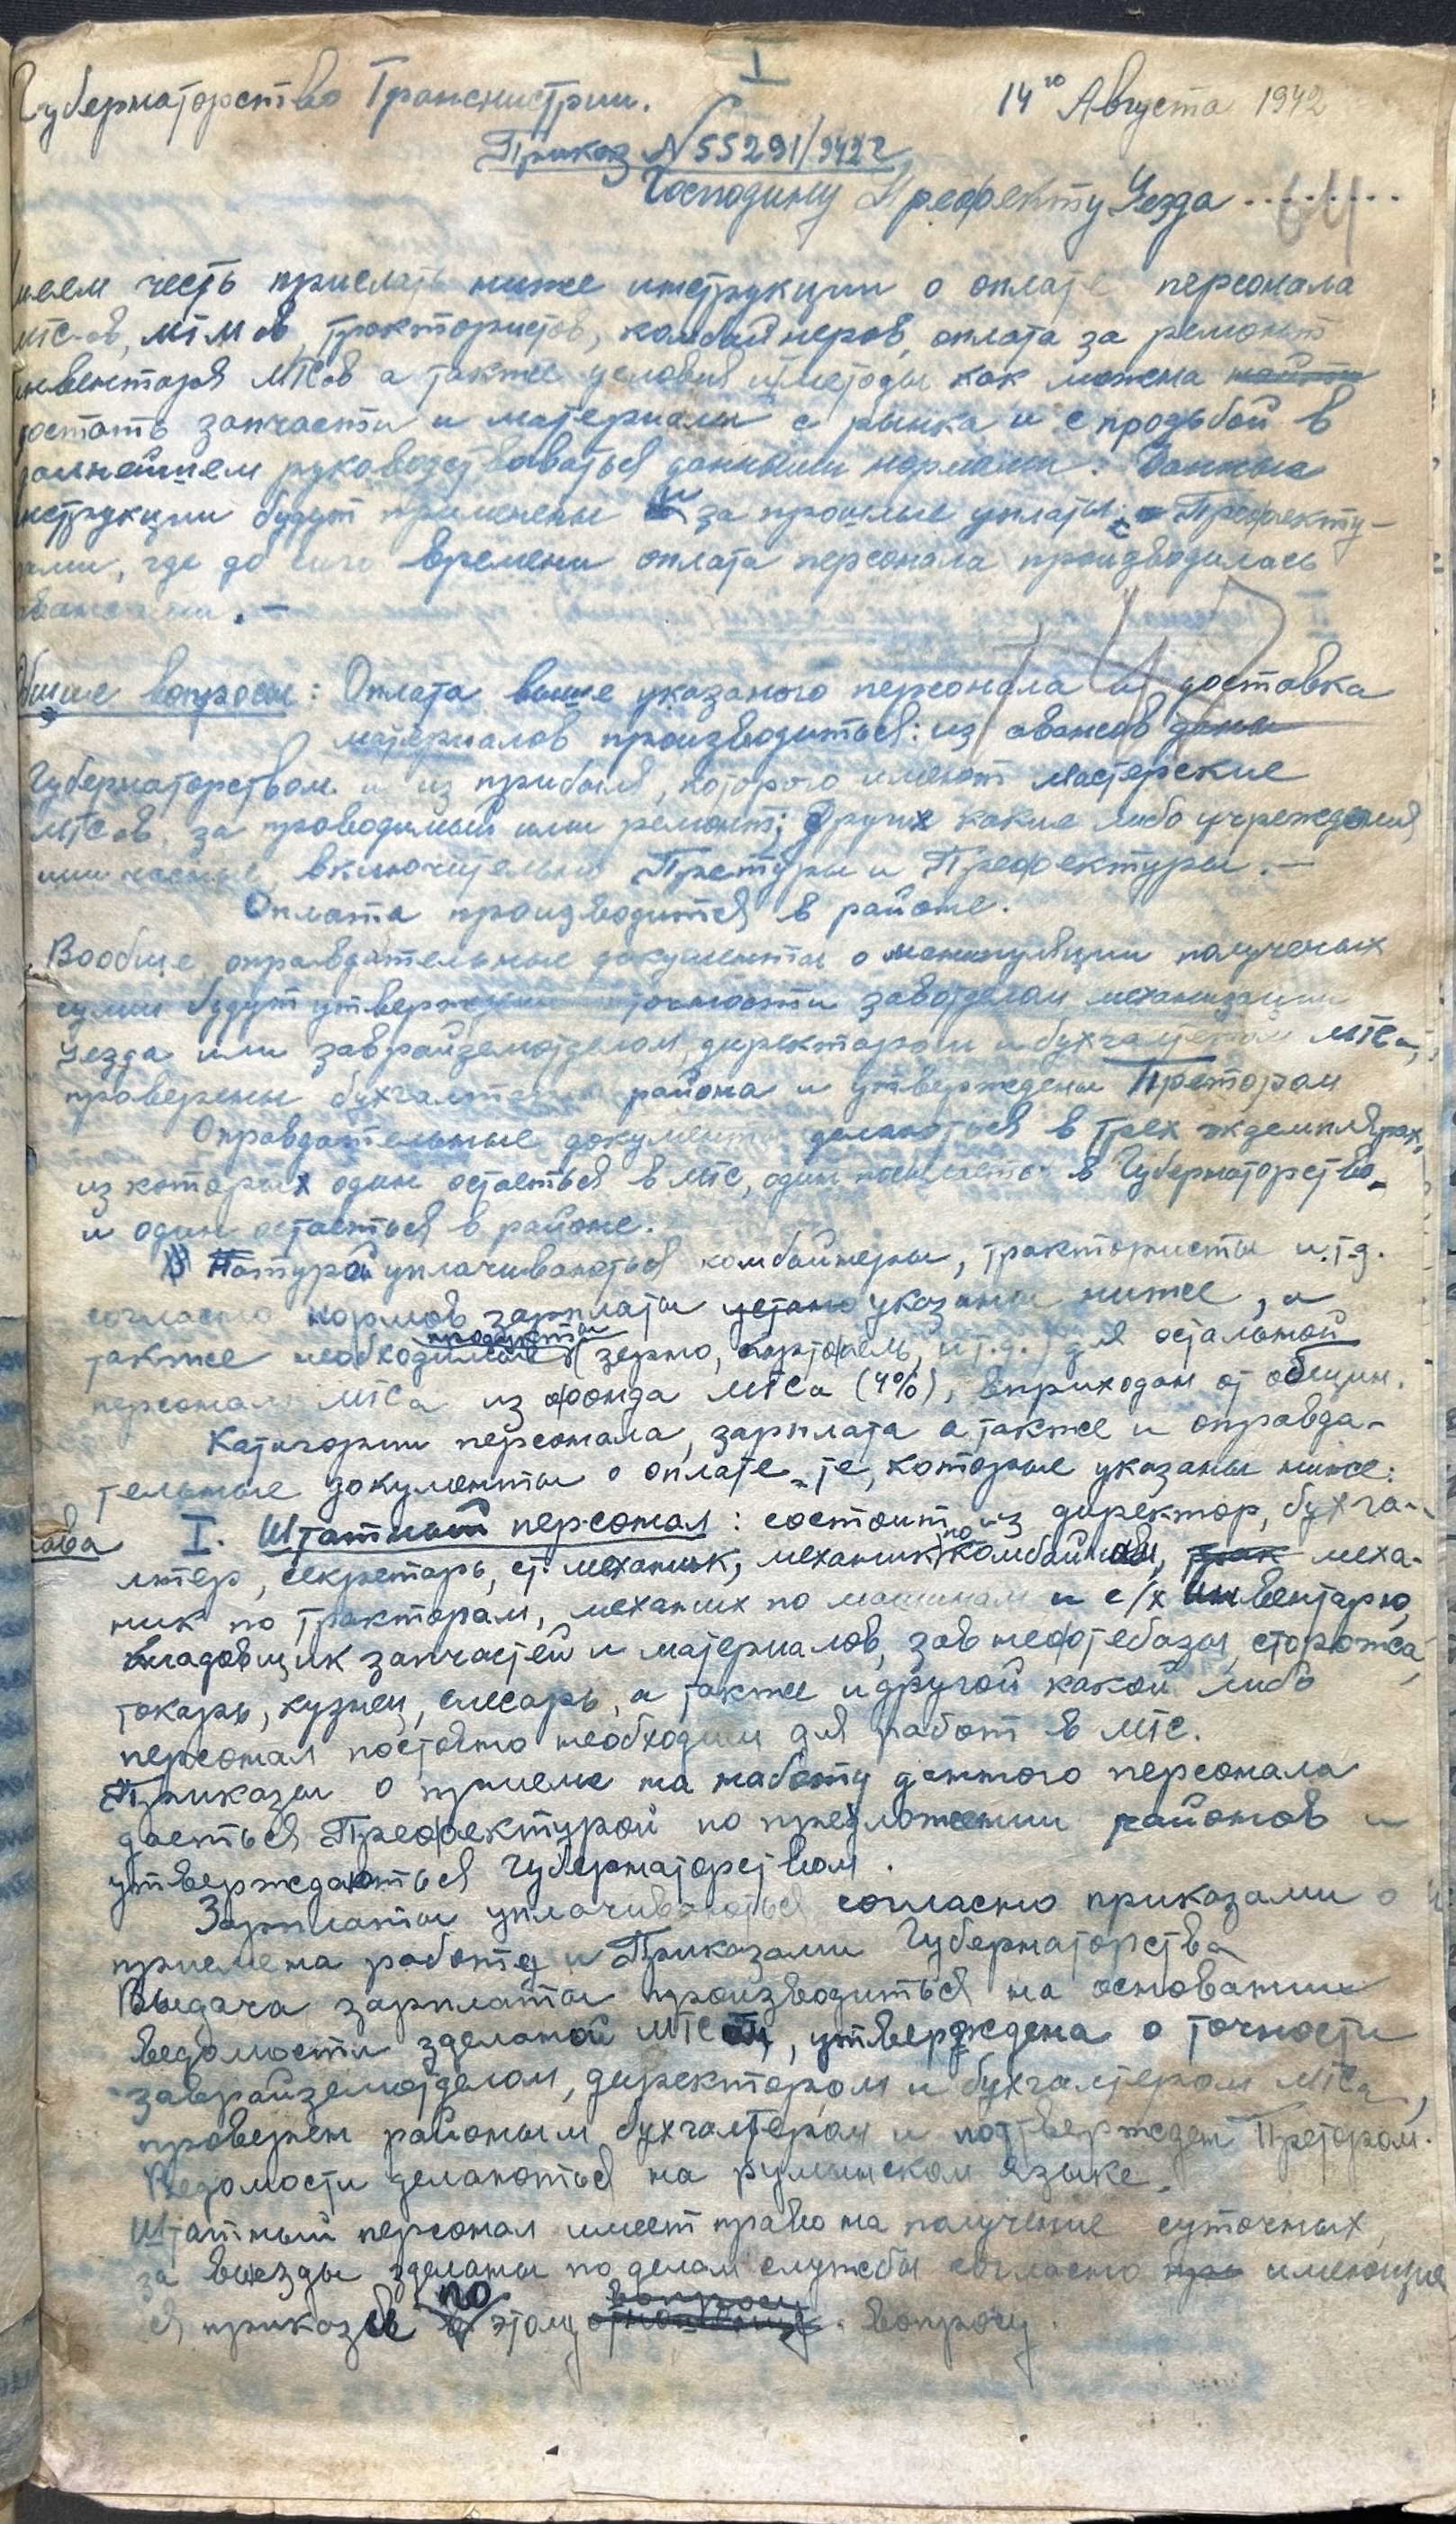 I
Губернаторство Транснистрии. 14го Августа 1942
Приказ N 55291/942 г
Господину Префекту Уезда .........
64
честь прислать ниже инструкции о оплате персонала
МТС-ов, МТМ ов, трактористов, комбайнеров, оплата за ремонт
инвентаря МТСов а также условия и методы как можна найти
достать запчасти и материали с рынка и с прозьбой в
дальнейшем руководствоваться данными нормами. Данные
инструкции будут применены и за прошлые уплаты с Префекту-
рами, где до сиго времени оплата персонала производилась
авансами. —
147
Общие вопросы: Оплата выше указаного персонала и доставка
материалов производиться: из авансов даны
Губернаторством и из прибыля, которого имеют мастерские
МТСов, за проводимый ими ремонт; других какие либо учреждения
или часные, включительно Претуры и Префектуры. —
Оплата производится в районе.
Вообще, оправдательные документы о манипуляции полученых
сумм будут утверждены точности завотделом механизации
Уезда или заврайземотделом, директором и бухгалтером МТСа,
проверены бухгалтером района и утверждены Претором
Оправдательные документы делаються в трех экземплярах,
из которых один остаеться в МТС, один посылается в Губернаторство
и один остаеться в районе.
Натурой уплачиваються комбайнеры, трактористы и.т.д.
согласно нормов зарплаты устано указаны ниже, а
продукты
также необходимые (зерно, картофель, и т.д.) для остальной
персонал МТСа из фонда МТСа (4%), вприходан от общин.
Категории персонала, зарплата а также и оправда-
тельные документы о оплате, те, которые указаны ниже:
I. Штатный персонал: состоит из директор, бухга-
лтер, секретарь, ст. механик, механик по комбайнам, трак меха-
ник по тракторам, механик по машинам и с/х инвентарю,
кладовщик запчастей и материалов, зав нефтебазы, сторожа,
токарь, кузнец, слесарь, а также и другой какой либо
персонал постоянно необходим для работ в МТС.
Приказы о приеме на работу данного персонала
даеться Префектурой по предложении районов и
утверждаються Губернаторством.
Зарплаты уплачиваються согласно приказами о
приеме на работу и Приказами Губернаторства
Выдача зарплаты производиться на основании
ведомости зделаной МТС, утверждена о точности
заврайземотделом, директором и бухгалтером МТСа,
проверен районым бухгалтером и подтвержден Претором.
Ведомости делаються на румынском языке.
Штатный персонал имеет право на получение суточных
за выезды зделаны по делам службы согласно при имеющие
ся приказы по этому вопросу.